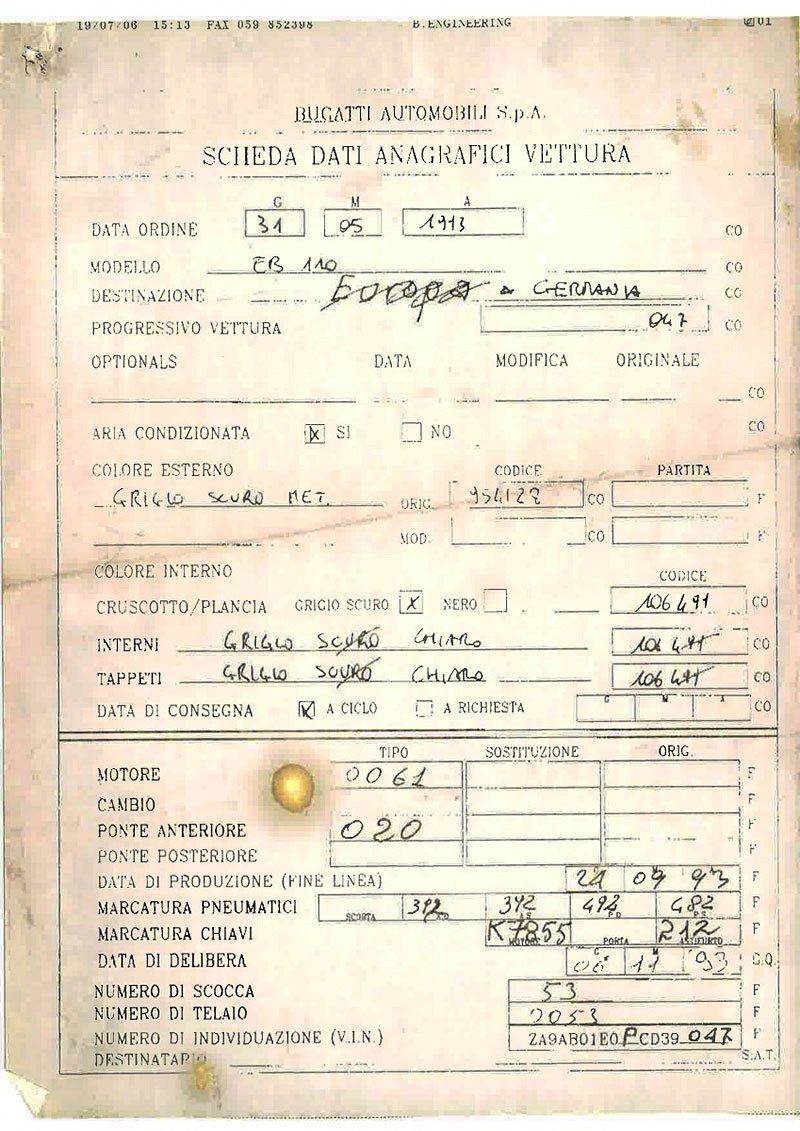 19/07/06 15:13 FAX 059 852398 B.ENGINEERING 01
BUGATTI AUTOMOBILI S.p.A.
SCHEDA DATI ANAGRAFICI VETTURA
G M A
DATA ORDINE 31 05 1993 CO
MODELLO EB 110 CO
DESTINAZIONE Europa GERMANIA CO
PROGRESSIVO VETTURA 047 CO
OPTIONALS DATA MODIFICA ORIGINALE
CO
ARIA CONDIZIONATA X SI NO CO
COLORE ESTERNO CODICE PARTITA
GRIGIO SCURO MET. ORIG. 954128 CO F
MOD. CO F
COLORE INTERNO CODICE
CRUSCOTTO/PLANCIA GRIGIO SCURO X NERO 106491 CO
INTERNI GRIGIO SCURO CHIARO CO
TAPPETI GRIGIO SCURO CHIARO CO
DATA DI CONSEGNA X A CICLO A RICHIESTA G M A CO
TIPO SOSTITUZIONE ORIG.
MOTORE 0061 F
CAMBIO F
PONTE ANTERIORE 020 F
PONTE POSTERIORE F
DATA DI PRODUZIONE (FINE LINEA) 21 09 93 F
MARCATURA PNEUMATICI SCORTA 392 A.D. 392 A.S. 492 P.D. 482 P.S. F
MARCATURA CHIAVI K7855 MOTORE PORTA 212 ANTIFURTO F
DATA DI DELIBERA G 06 M 11 93 G.Q.
NUMERO DI SCOCCA 53 F
NUMERO DI TELAIO 2053 F
NUMERO DI INDIVIDUAZIONE (V.I.N.) ZA9AB01E0PCD39047 F
DESTINATARIO S.A.T.